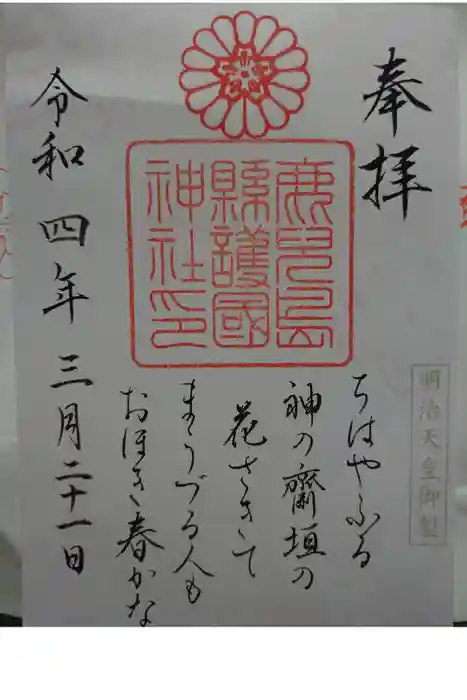 奉拝
鹿児島
縣護國
神社印
明治天皇御製
ちはやふる
神の齋垣の
花さきて
まうづる人も
おほき春かな
令和四年三月二十一日